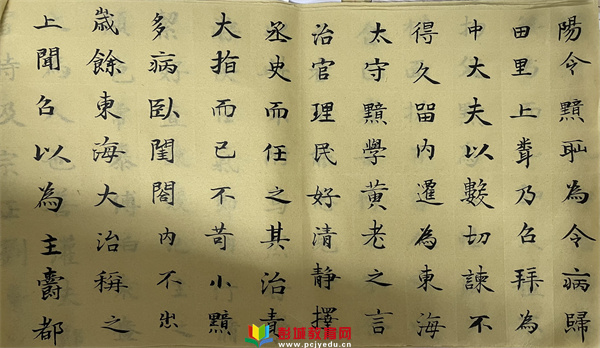 陽令黯恥為令病歸
田里上聞乃召拜為
中大夫以數切諫不
得久留内遷為東海
太守黯學黄老之言
治官理民好清靜擇
丞史而任之其治責
大指而已不苛小黯
多病臥閨閤内不出
歲餘東海大治稱之
上聞召以為主爵都
彭城教育网
www.pcjyedu.cn